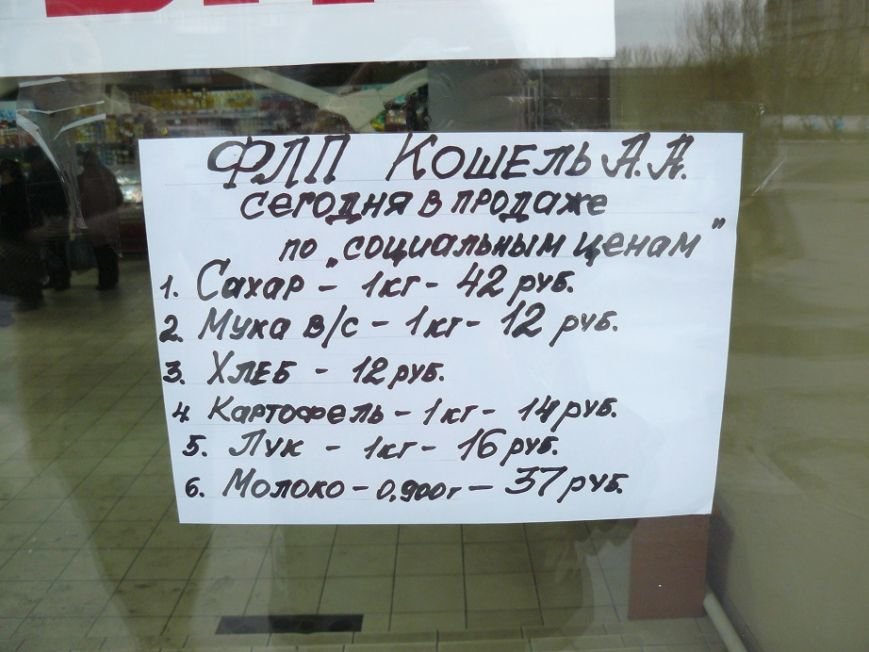 ФЛП Кошель А.А.
сегодня в продаже
по „социальным ценам"
1. Сахар - 1кг - 42 руб.
2. Мука в/с - 1кг - 12 руб.
3. Хлеб - 12 руб.
4 Картофель - 1кг - 14 руб.
5. Лук - 1кг - 16 руб.
6. Молоко - 0,900г - 37 руб.